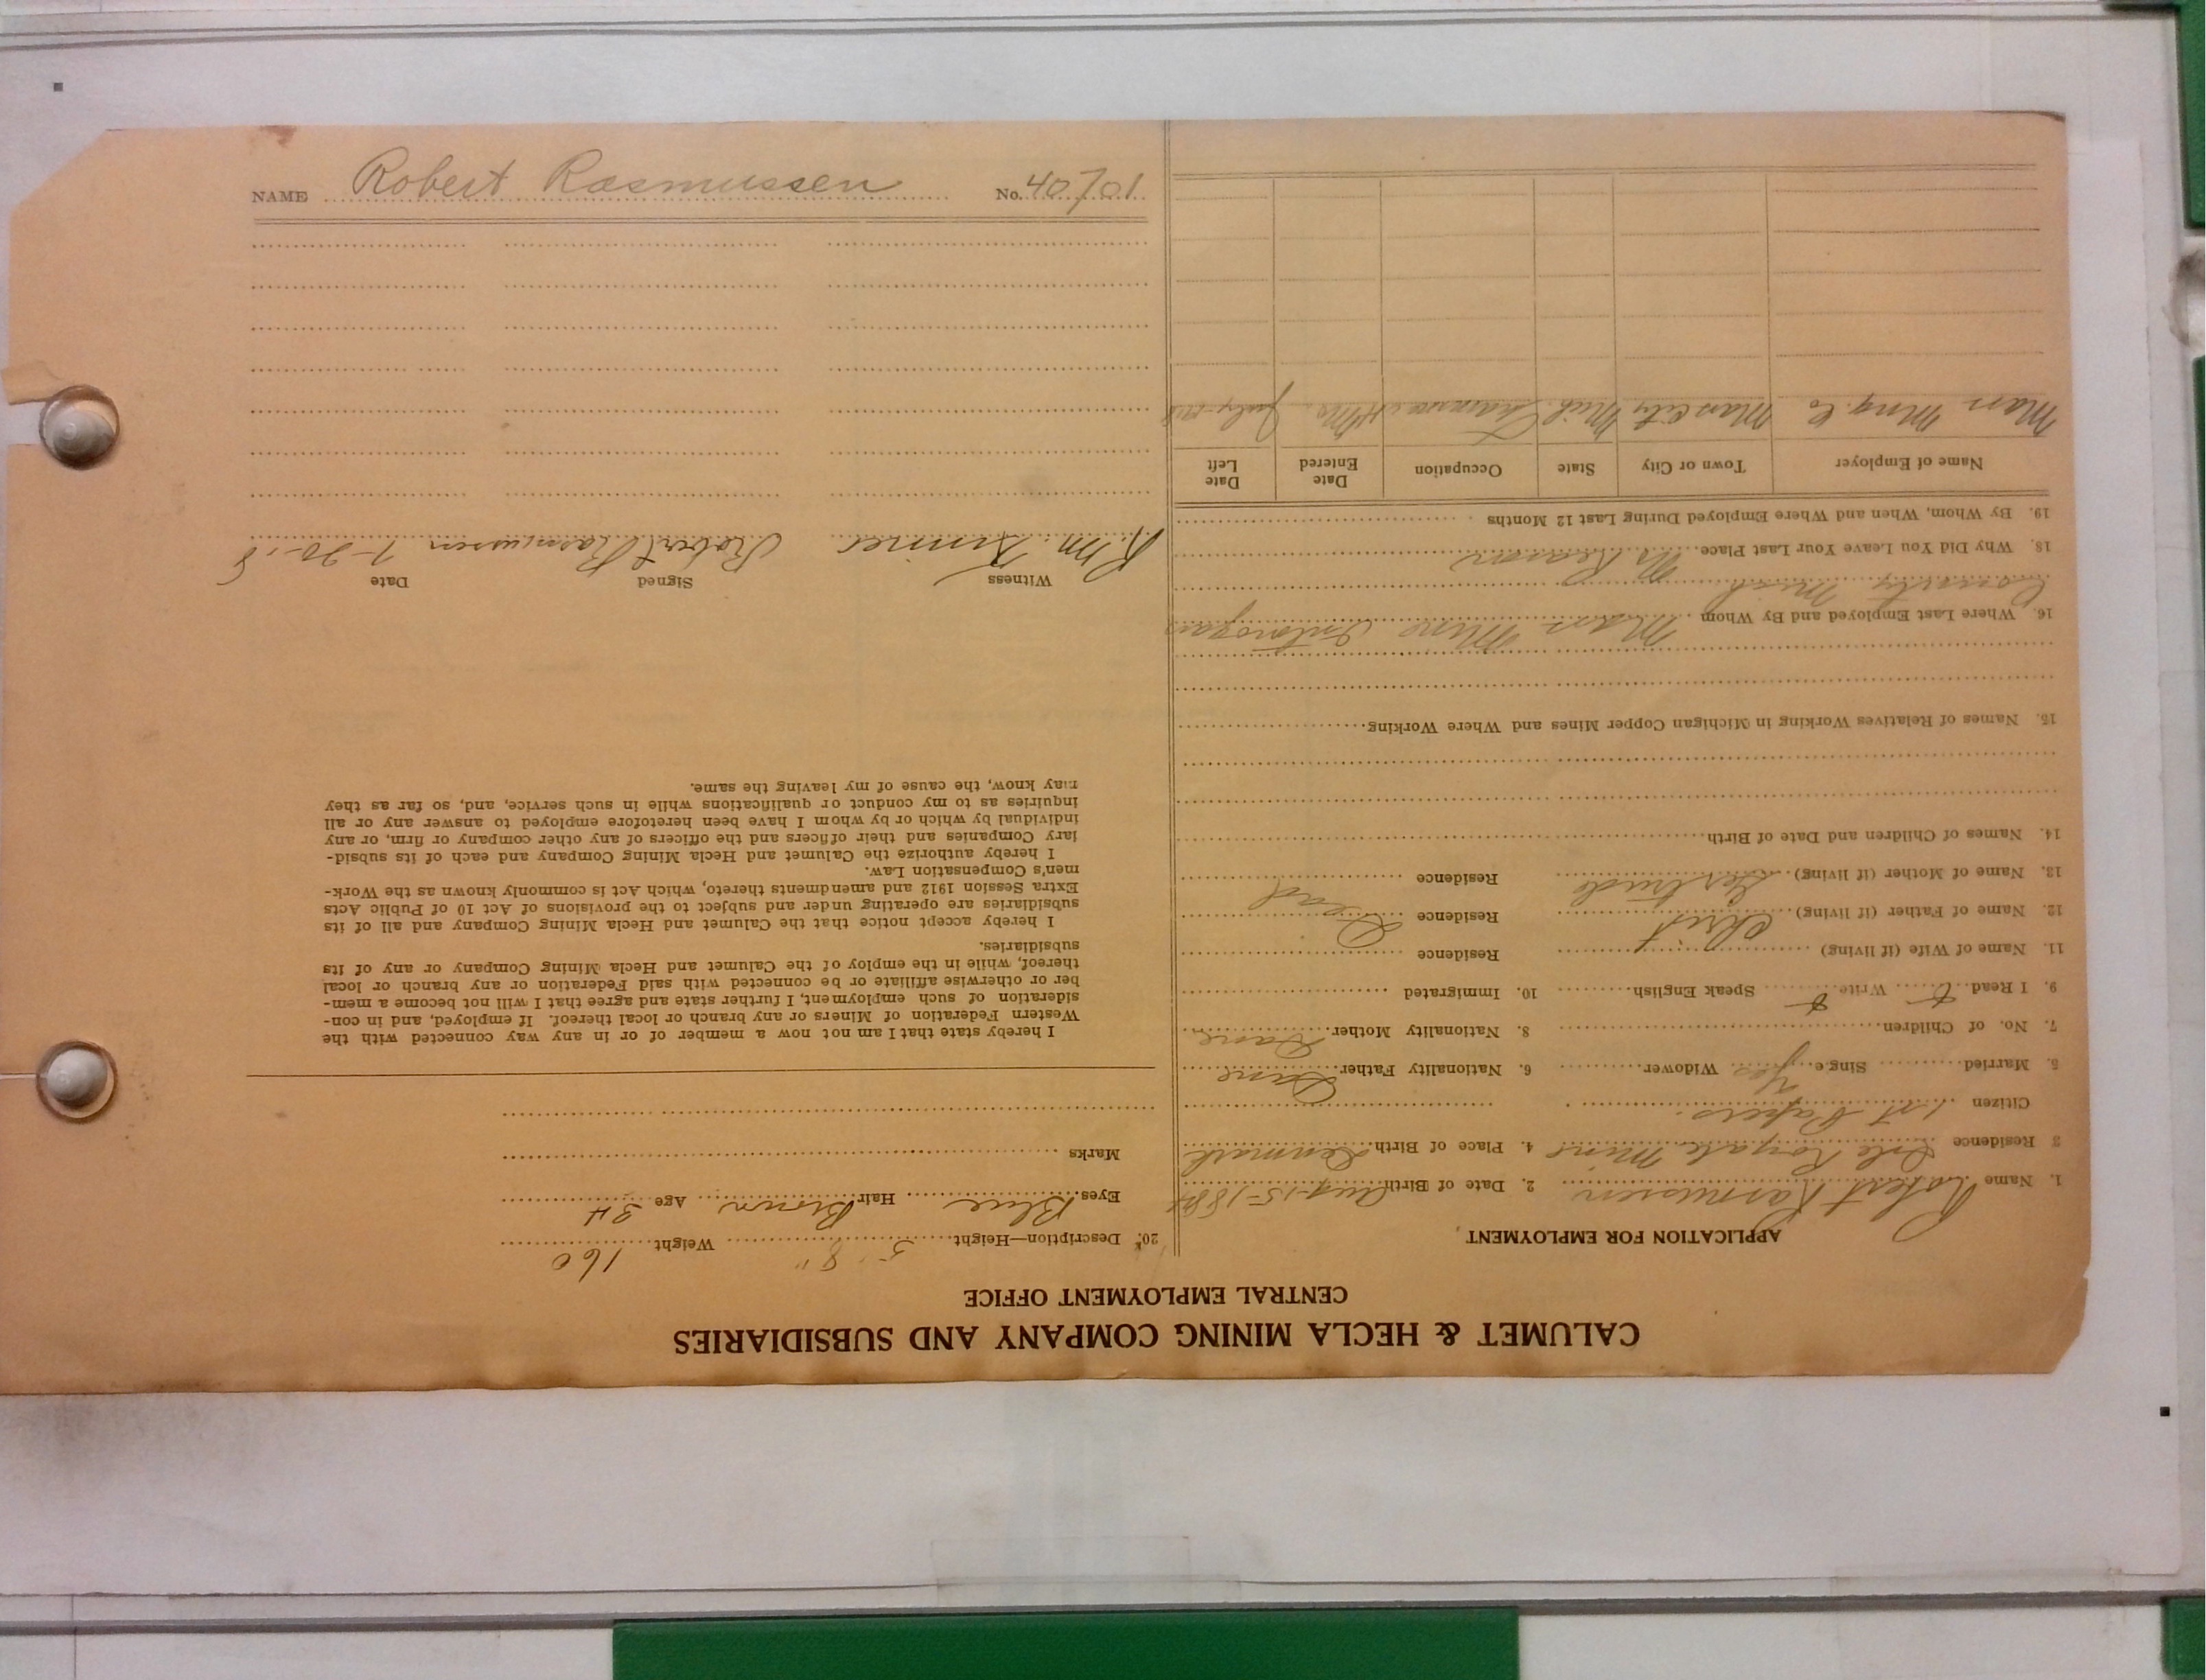 CALUMET & HECLA MINING COMPANY AND SUBSIDIARIES
CENTRAL EMPLOYMENT OFFICE
APPLICATION FOR EMPLOYMENT
1. Name Robert Rasmussen 2. Date of Birth Aug-15-1884
3 Residence Isle Royale Mine 4. Place of Birth Denmark
Citizen 1st Papers.
5. Married Sing.e Yes Widower 6. Nationality Father Dane
7. No. of Children 8. Nationality Mother Dane
9. I Read Write Speak English 10. Immigrated
11. Name of Wife (if living) Residence
12. Name of Father (if living) Christ Residence Dead
13. Name of Mother (if living) Gertrude Residence
14. Names of Children and Date of Birth
15. Names of Relatives Working in Michigan Copper Mines and Where Working
16. Where Last Employed and By Whom Mass Mine Ontonogan
County Mich
18. Why Did You Leave Your Last Place No Reason
19. By Whom, When and Where Employed During Last 12 Months
Name of Employer Town or City State Occupation Date Entered Date Left
Mass Mng. Co Mass City Mich. Mo. July-1918
20. Description—Height 5' 8" Weight 160
Eyes Blue Hair Brown Age 34
Marks
I hereby state that I am not now a member of or in any way connected with the
Western Federation of Miners or any branch or local thereof. If employed, and in con-
sideration of such employment, I further state and agree that I will not become a mem-
ber or otherwise affiliate or be connected with said Federation or any branch or local
thereof, while in the employ of the Calumet and Hecla Mining Company or any of its
subsidiaries.
I hereby accept notice that the Calumet and Hecla Mining Company and all of its
subsidiaries are operating under and subject to the provisions of Act 10 of Public Acts
Extra Session 1912 and amendments thereto, which Act is commonly known as the Work-
men's Compensation Law.
I hereby authorize the Calumet and Hecla Mining Company and each of its subsid-
iary Companies and their officers and the officers of any other company or firm, or any
individual by which or by whom I have been heretofore employed to answer any or all
inquiries as to my conduct or qualifications while in such service, and, so far as they
may know, the cause of my leaving the same.
Witness Signed Date
R.M. Robert Rasmussen 7-20-18
NAME Robert Rasmussen No. 40701